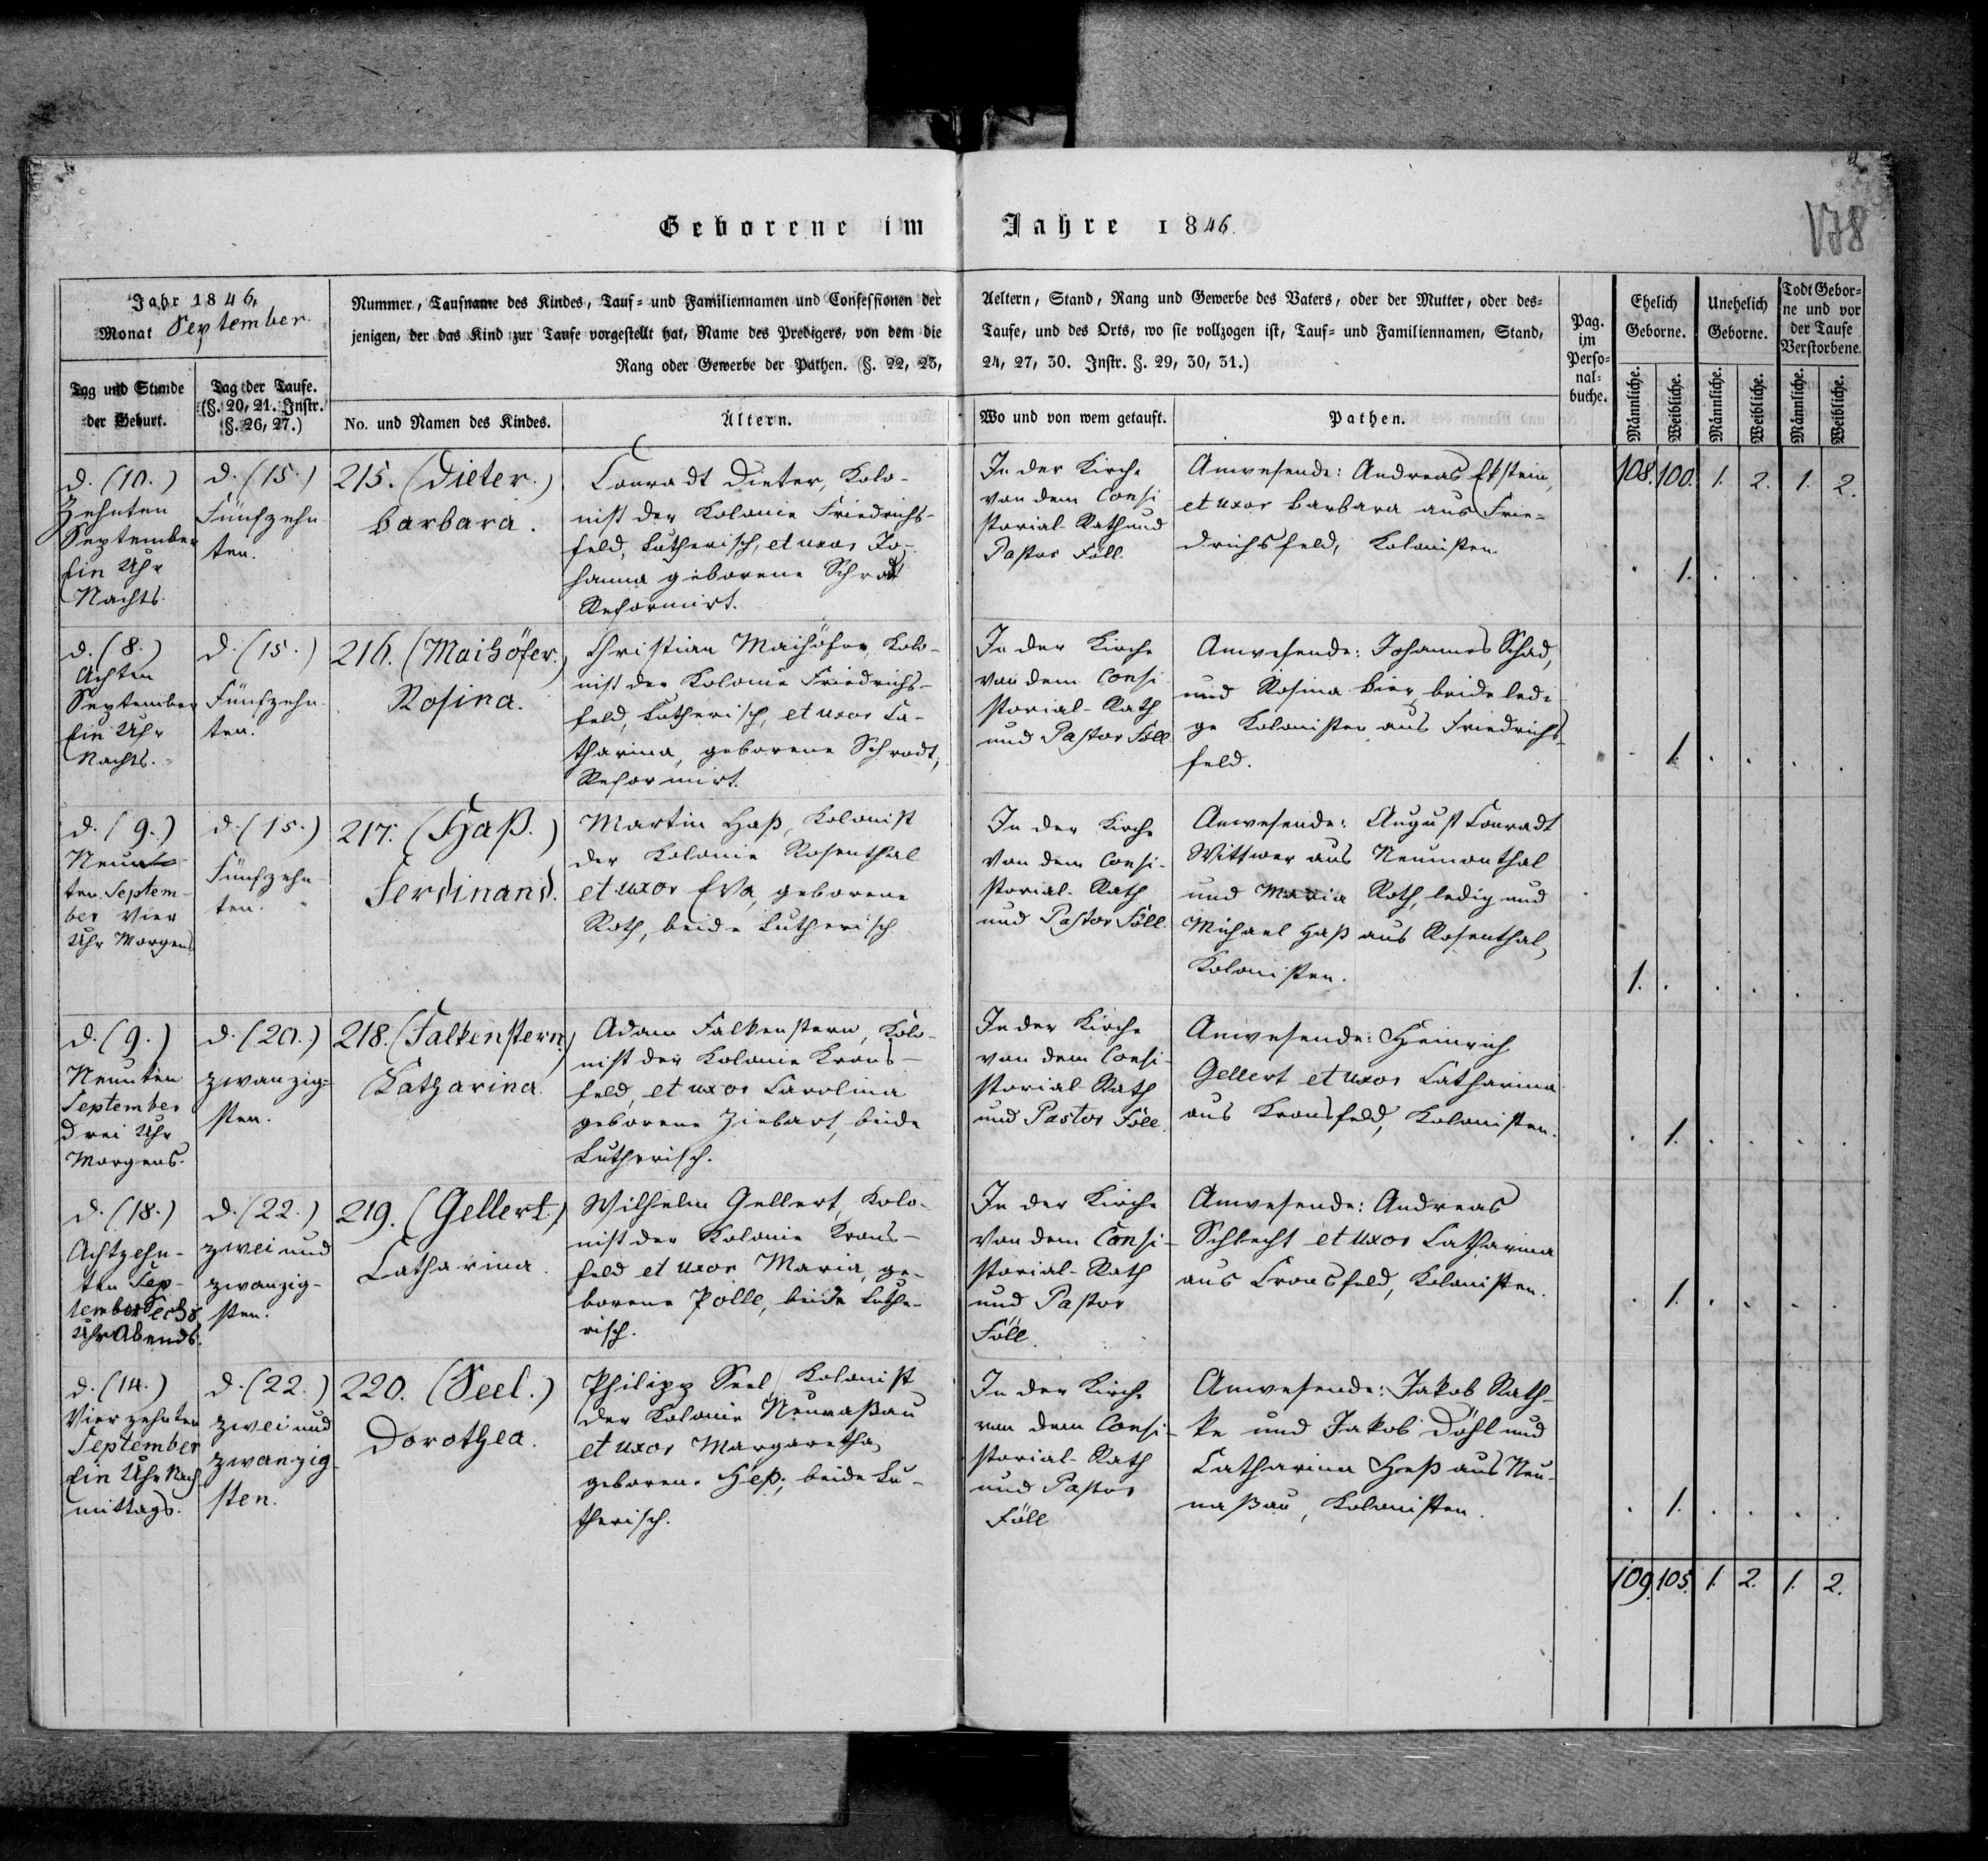 Geborene im Jahre 1846.
178
Jahr 1846.
Monat September.
Nummer, Taufname des Kindes, Tauf- und Familiennamen und Confessionen der
jenigen, der das Kind zur Taufe vorgestellt hat, Name des Predigers, von dem die
Rang oder Gewerbe der Pathen. (§. 22, 23,
Aeltern, Stand, Rang und Gewerbe des Vaters, oder der Mutter, oder des-
Taufe, und des Orts, wo sie vollzogen ist, Tauf- und Familiennamen, Stand,
24, 27, 30. Instr. §. 29, 30, 31.)
Pag.
im
Perso-
nal-
buche.
Ehelich
Geborne.
Unehelich
Geborne.
Todt Gebor-
ne und vor
der Taufe
Verstorbene.
Tag und Stunde
der Geburt.
Tag der Taufe.
(§. 20, 21. Instr.
§. 26, 27.)
No. und Namen des Kindes.
Ältern.
Wo und von wem getauft.
Pathen.
Männliche.
Weibliche.
Männliche.
Weibliche.
Männliche.
Weibliche.
d. (10.)
Zehnten
September
Ein Uhr
Nachts.
d. (15.)
Fünfzehn
ten.
215. (Dieter.)
Barbara.
Conradt Dieter, Kolo-
nist der Kolonie Friedrichs-
feld, Lutherisch, et uxor Jo-
hanna geborene Schrodt
Reformirt.
In der Kirche
von dem Consi
storial-Rath und
Pastor Föll.
Anwesende: Andreas Ekstein,
et uxor Barbara aus Frie-
drichsfeld, Kolonisten.
108. 100. 1. 2. 1. 2.
. 1. . . . .
d. (8.)
Achten
September
Ein Uhr
Nachts.
d. (15.)
Fünfzehn-
ten.
216. (Maihöfer.)
Rosina.
Christian Maihöfer, Kolo-
nist der Kolonie Friedrichs-
feld, Lutherisch, et uxor Ca-
tharina, geborene Schrodt,
Reformirt.
In der Kirche
von dem Consi
storial-Rath
und Pastor Föll.
Anwesende: Johannes Schad,
und Rosina Bier beide ledi-
ge Kolonisten aus Friedrichs-
feld.
. 1. . . . .
d. (9.)
Neun-
ten Septem-
ber Vier
Uhr Morgens
d. (15.)
Fünfzehn-
ten.
217. (Haß.)
Ferdinand.
Martin Haß, Kolonist
der Kolonie Rosenthal
et uxor Eva, geborene
Roth, beide Lutherisch
In der Kirche
von dem Consi-
storial-Rath
und Pastor Föll.
Anwesende: August Conradt
Wittwer aus Neumonthal
und Maria Roth, ledig und
Michael Haß aus Rosenthal,
Kolonisten.
1. . . . . .
d. (9.)
Neunten
September
Drei Uhr
Morgens.
d. (20.)
zwanzig-
sten.
218. (Falkenstern.)
Katharina.
Adam Falkenstern, Kolo-
nist der Kolonie Krons-
feld, et uxor Carolina
geborene Ziebart, beide
Lutherisch.
In der Kirche
von dem Consi-
storial-Rath
und Pastor Föll.
Anwesende: Heinrich
Gellert et uxor Catharina
aus Kronsfeld, Kolonisten.
. 1. . . . .
d. (18.)
Achtzehn-
ten Sep-
tember Sechs
Uhr Abends.
d. (22.)
zwei und
zwanzig-
sten.
219. (Gellert.)
Catharina.
Wilhelm Gellert, Kolo-
nist der Kolonie Krons-
feld et uxor Maria, ge-
borene Polle, beide Luthe-
risch.
In der Kirche
von dem Consi-
storial-Rath
und Pastor
Föll.
Anwesende: Andreas
Schlecht et uxor Catharina
aus Cronsfeld, Kolonisten.
. 1. . . . .
d. (14.)
Vierzehnten
September
Ein Uhr Nach
mittags.
d. (22.)
zwei und
zwanzig-
sten.
220. (Seel.)
Dorothea.
Philipp Seel, Kolonist
der Kolonie Neunaßau
et uxor Margaretha,
geborene Heß, beide Lu-
therisch.
In der Kirche
von dem Consi-
storial-Rath
und Pastor
Föll
Anwesende: Jakob Rath-
ke und Jakob Döhl und
Catharina Heß aus Neu-
naßau, Kolonisten.
. 1. . . . .
109. 105. 1. 2. 1. 2.